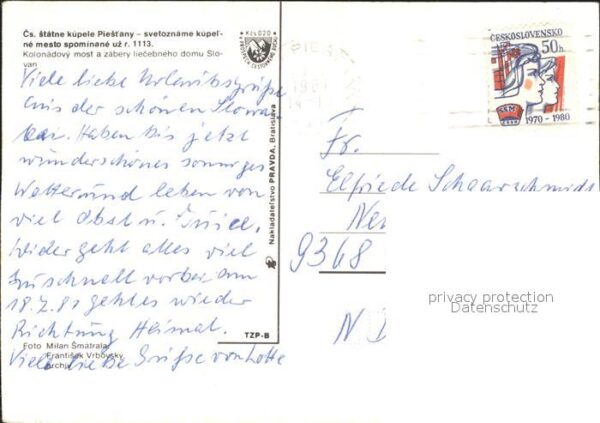 Čs. štátne kúpele Piešťany – svetoznáme kúpeľ-
né mesto spomínané už r. 1113.
Kolonádový most a zábery liečebného domu Slo-
van
Viele liebe Urlaubsgrüße
aus der schönen Slowa-
kei. Haben bis jetzt
wunderschönes sonniges
Wetter und leben von
viel Obst u.
Leider geht alles viel
zu schnell vorbei. Am
18.7.81 geht es wieder
Richtung Heimat.
Viele liebe Grüße von Lotte
Foto Milan Šmátrala,
František Vrbovský,
archív
Kčs 0,20
Nakladateľstvo PRAVDA, Bratislava
TZP-B
ČESKOSLOVENSKO
50h
SSM
1970 - 1980
Fr.
Elfriede Schaarschmidt
9368
privacy protection
Datenschutz